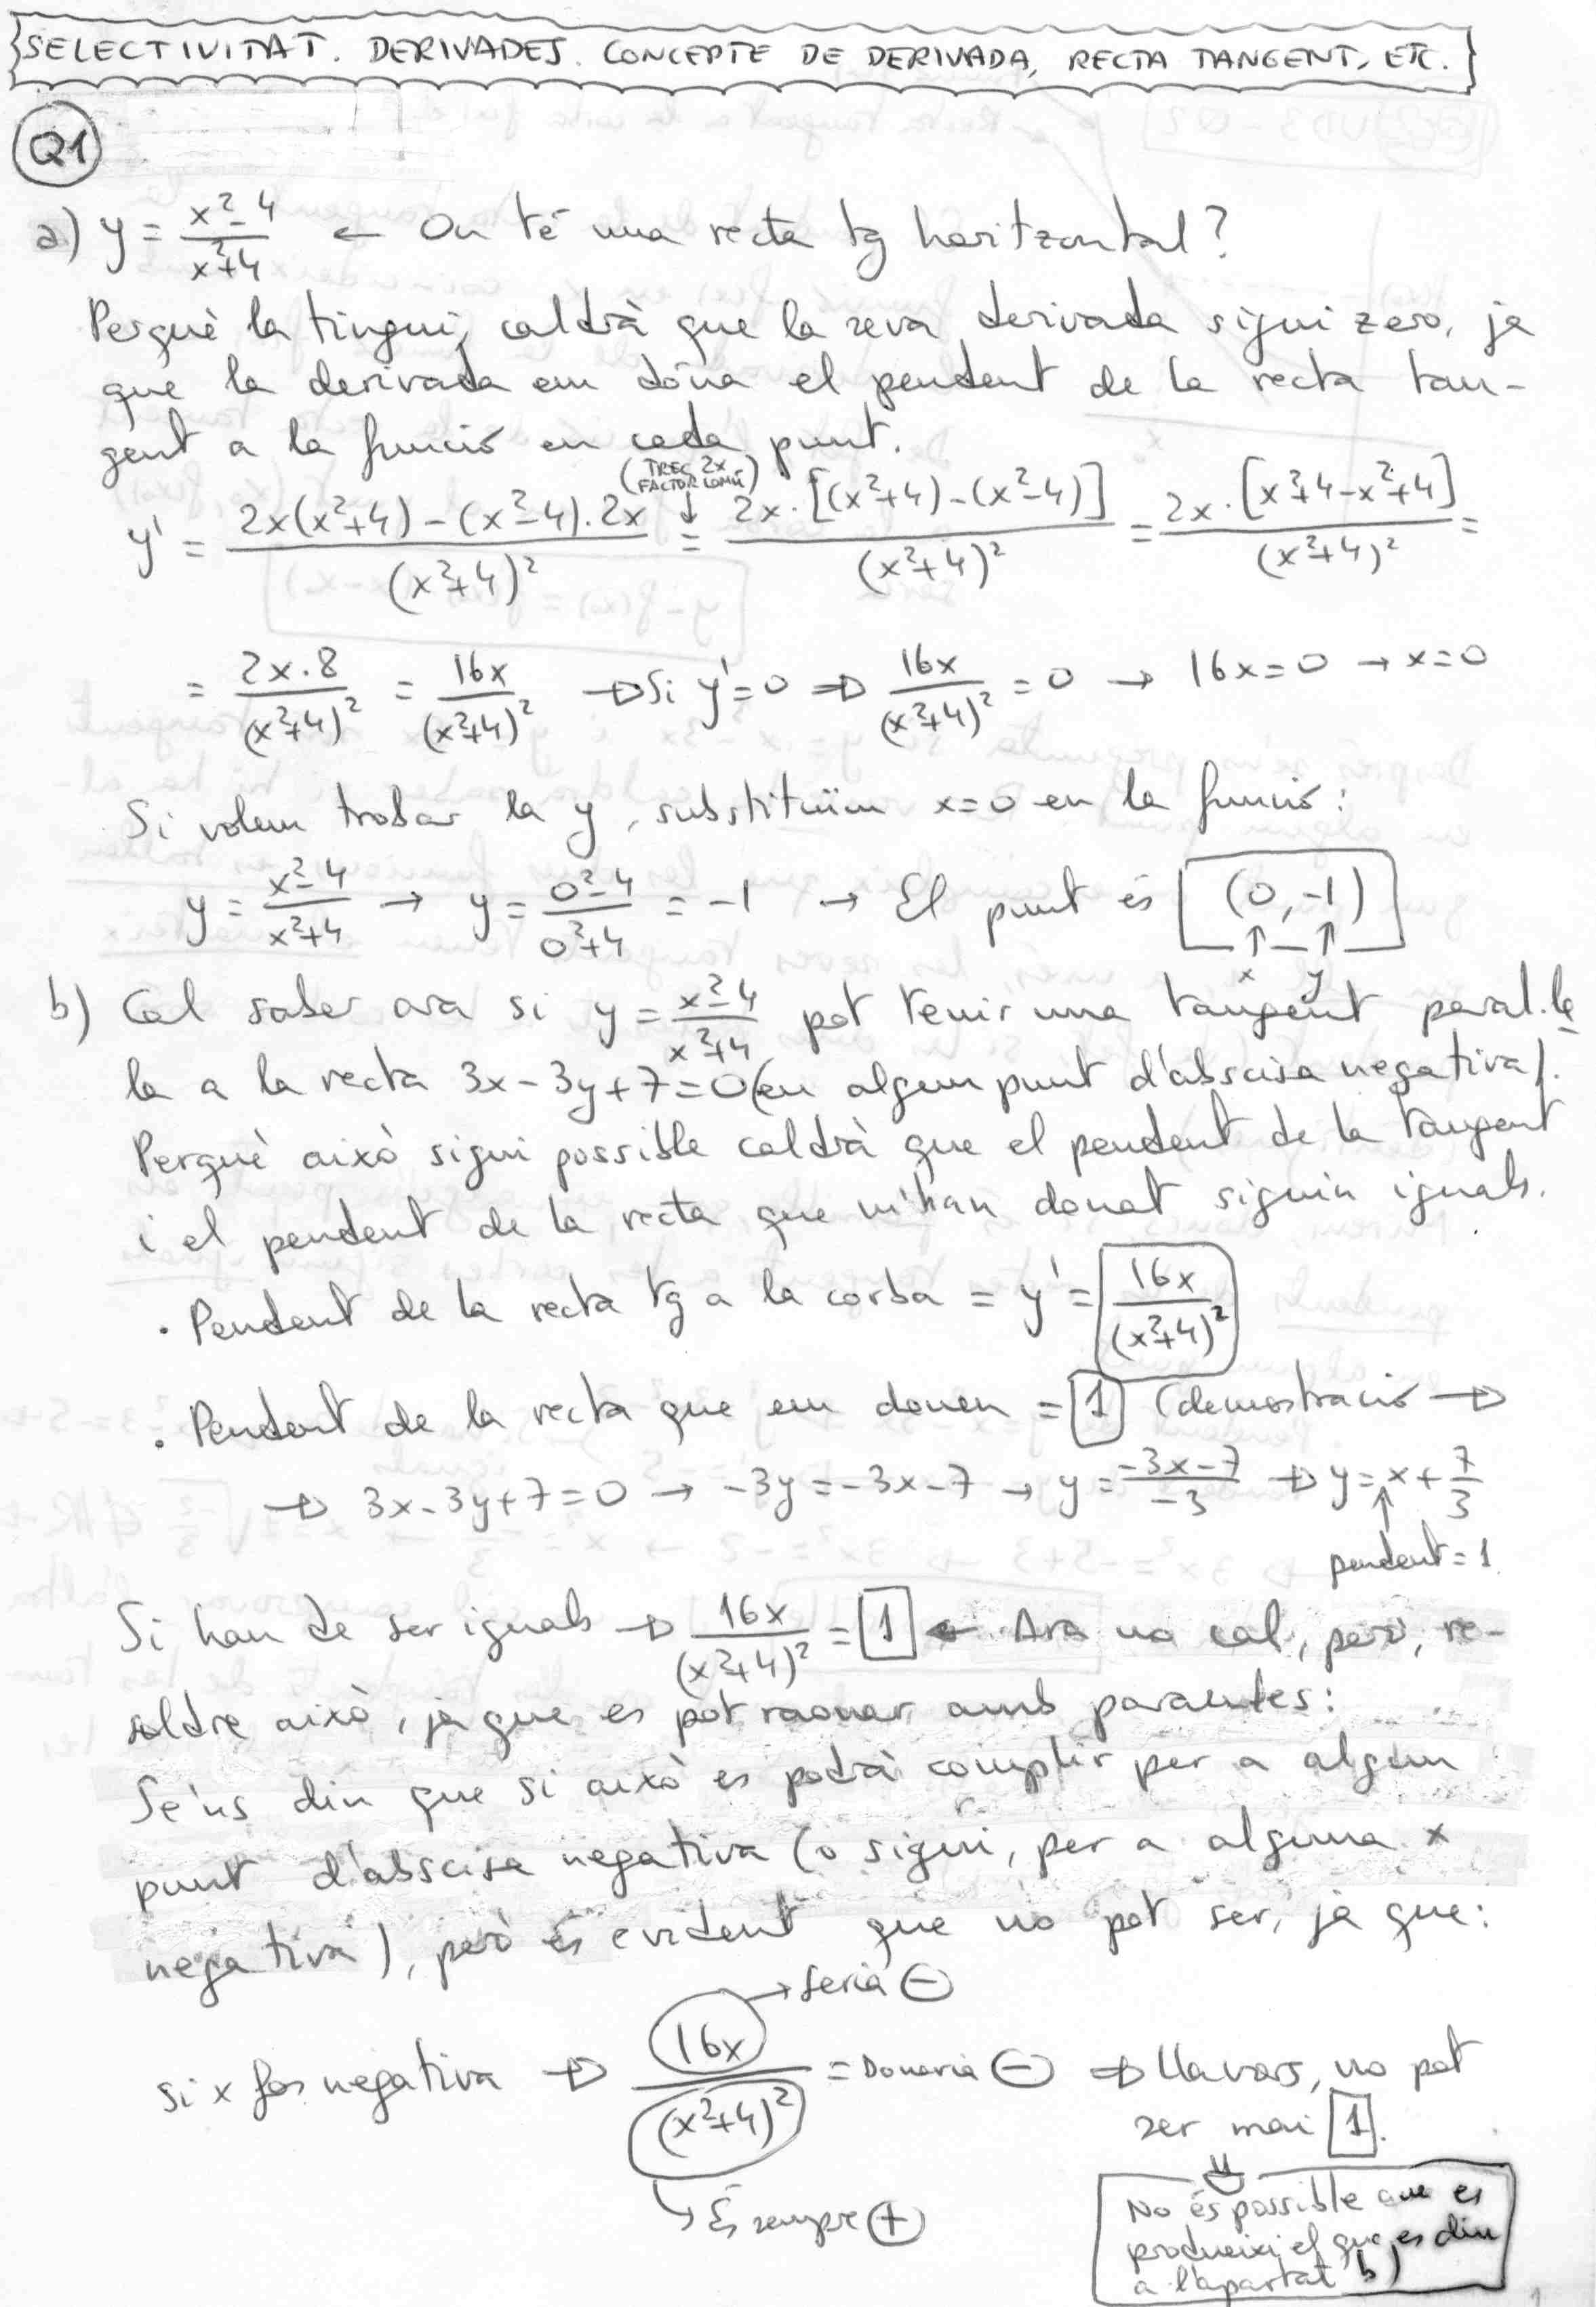 SELECTIVITAT. DERIVADES. CONCEPTE DE DERIVADA, RECTA TANGENT, ETC.
Q1
a) y = (x²-4)/(x²+4) ← On té una recta tg horitzontal?
Perquè la tingui, caldrà que la seva derivada sigui zero, ja
que la derivada em dóna el pendent de la recta tan-
gent a la funció en cada punt.
(TREC 2x FACTOR COMÚ)
y' = (2x(x²+4)-(x²-4)·2x)/(x²+4)² = (2x·[(x²+4)-(x²-4)])/(x²+4)² = (2x·[x²+4-x²+4])/(x²+4)² =
= (2x·8)/(x²+4)² = 16x/(x²+4)² → Si y'=0 ⇒ 16x/(x²+4)² = 0 → 16x=0 → x=0
Si volem trobar la y, substituïm x=0 en la funció:
y = (x²-4)/(x²+4) → y = (0²-4)/(0²+4) = -1 → El punt és (0,-1)
↑ ↑
x y
b) Cal saber ara si y = (x²-4)/(x²+4) pot tenir una tangent paral.le
la a la recta 3x-3y+7=0 (en algun punt d'abscisa negativa).
Perquè això sigui possible caldrà que el pendent de la tangent
i el pendent de la recta que m'han donat siguin iguals.
· Pendent de la recta tg a la corba = y' = 16x/(x²+4)²
· Pendent de la recta que em donen = 1 (demostració →
→ 3x-3y+7=0 → -3y=-3x-7 → y = (-3x-7)/-3 → y = x + 7/3
↑
pendent = 1
Si han de ser iguals → 16x/(x²+4)² = 1 ← Ara no cal, però, re-
soldre això, ja que es pot raonar amb paraules:
Se'ns diu que si això es podrà complir per a algun
punt d'abscisa negativa (o sigui, per a alguna x
negativa), però és evident que no pot ser, ja que:
→ Seria ⊖
si x fos negativa → 16x/(x²+4)² = Donaria ⊖ ⇒ Llavors, no pot
ser mai 1.
↳ És sempre ⊕
No és possible que es
produeixi el que es diu
a l'apartat b)
1